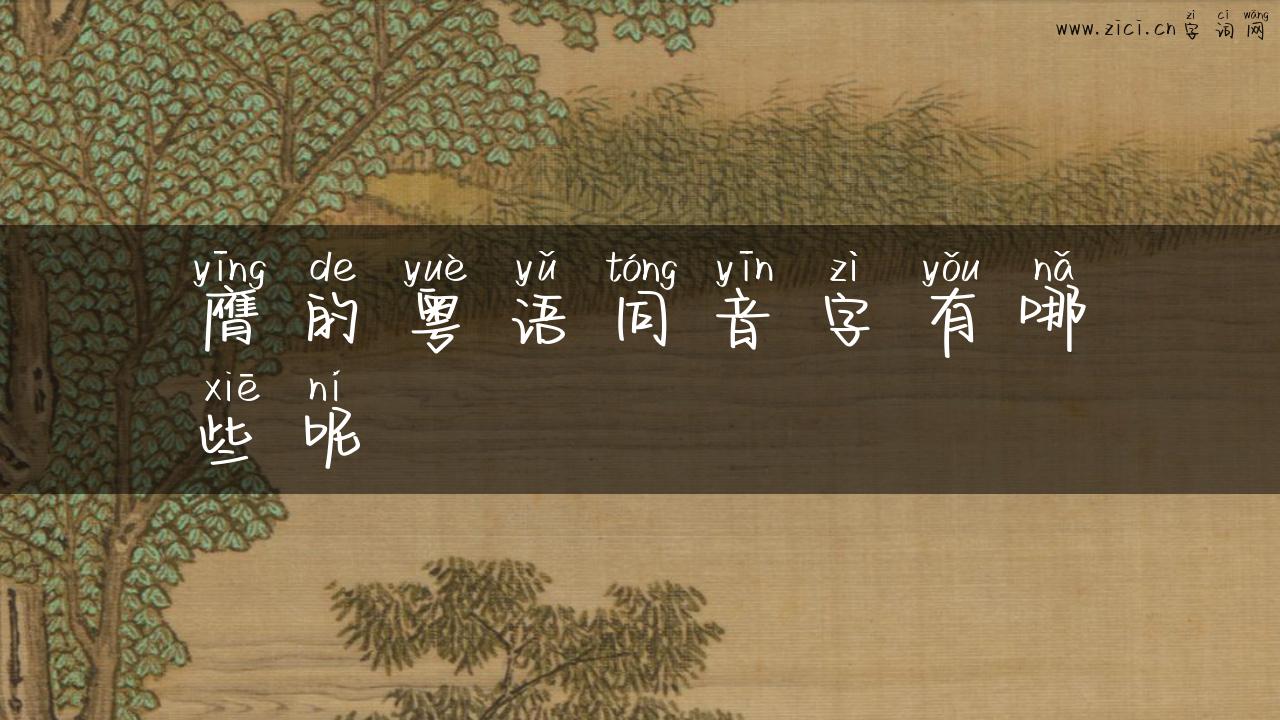 www.zici.cn zì cí wǎng
字词网
yīng de yuè yǔ tóng yīn zì yǒu nǎ
膺的粤语同音字有哪
xiē ní
些呢